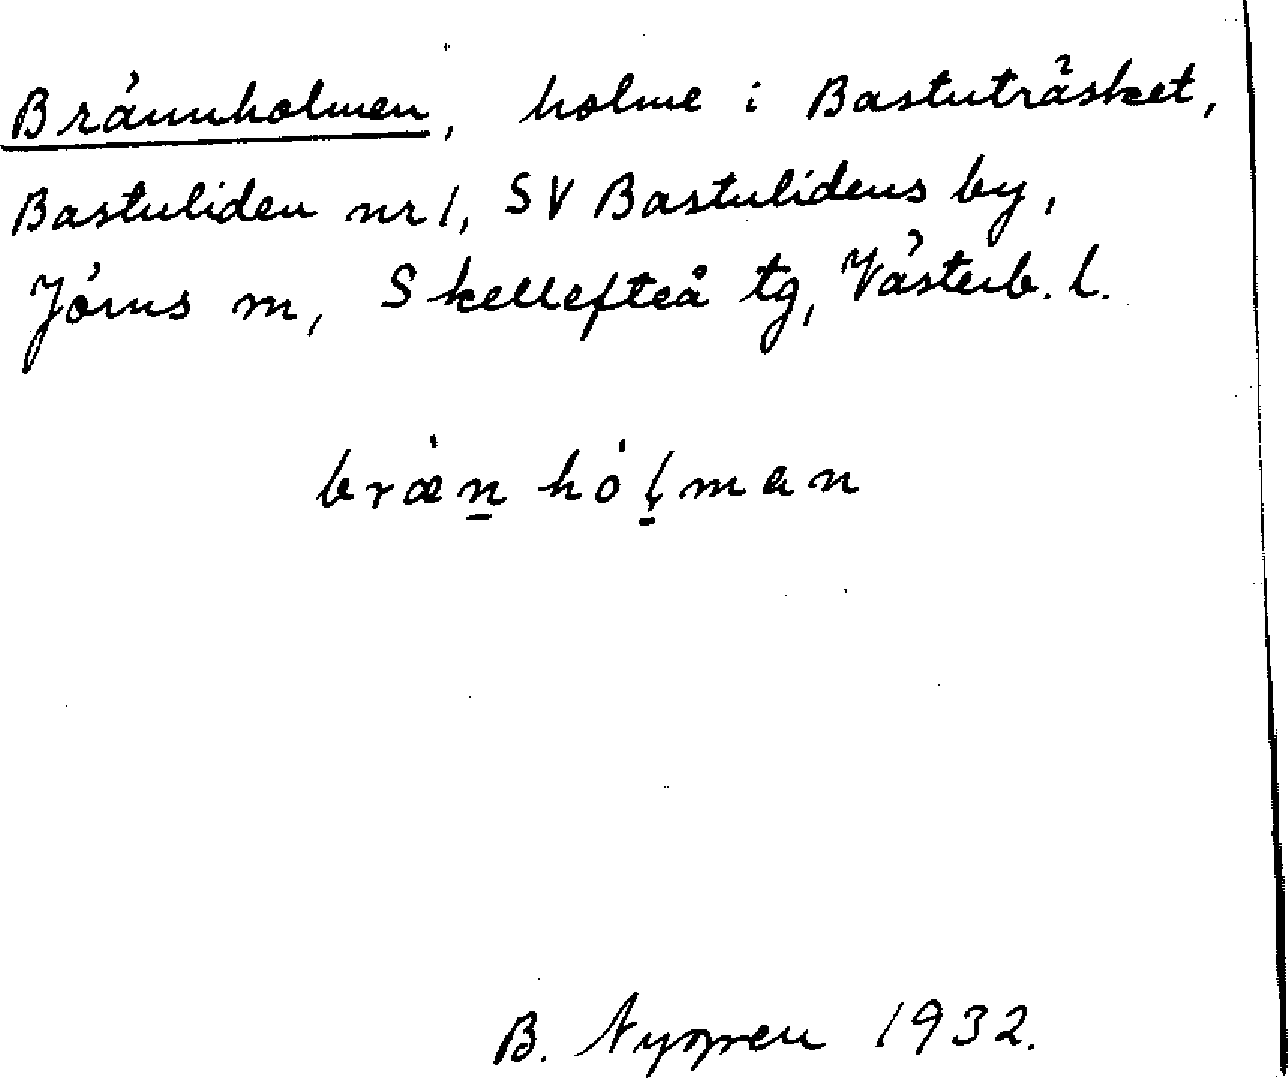 Brännholmen, holme i Bastuträsket,
Bastuliden nr 1, SV Bastulidens by,
Jörns m, Skellefteå tg, Västerb. l.
bræ̀n̲hól̲man
B. Nygren 1932.